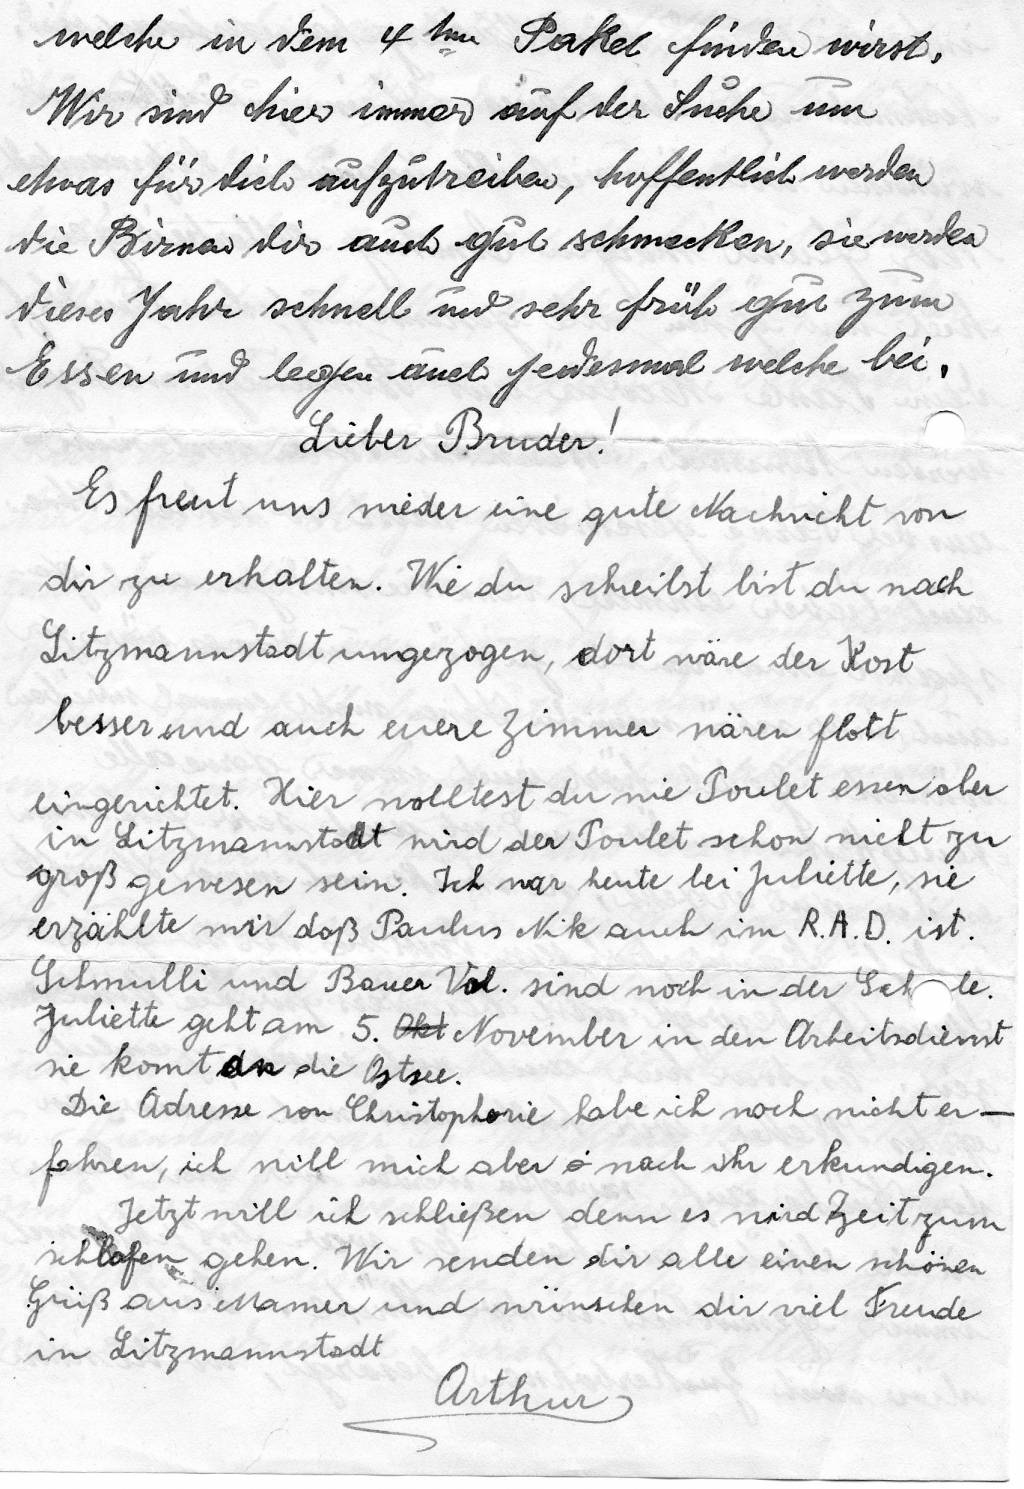 welche in dem 4 ten Paket finden wirst.
Wir sind hier immer auf der Suche um
etwas für dich aufzutreiben, hoffentlich werden
die Birnen dir auch gut schmecken, sie werden
dieses Jahr schnell und sehr früh gut zum
Essen und legen auch jedesmal welche bei.
Lieber Bruder!
Es freut uns wieder eine gute Nachricht von
dir zu erhalten. Wie du schreibst bist du nach
Litzmannstadt umgezogen, dort wäre der Kost
besser und auch euere Zimmer wären flott
eingerichtet. Hier wolltest du nie Poulet essen aber
in Litzmannstadt wird der Poulet schon nicht zu
groß gewesen sein. Ich war heute bei Juliette, sie
erzählte mir daß Paulus Nik auch im R.A.D. ist.
Schmulli und Bauer Val. sind noch in der Sch le.
Juliette geht am 5. Okt November in den Arbeitsdienst
sie komt an die Ostsee.
Die Adresse von Christophorie habe ich noch nicht er-
fahren, ich will mich aber nach ihr erkundigen.
Jetzt will ich schließen denn es wird Zeit zum
schlafen gehen. Wir senden dir alle einen schönen
Grüß aus Mamer und wünschen dir viel Freude
in Litzmannstadt
Arthur